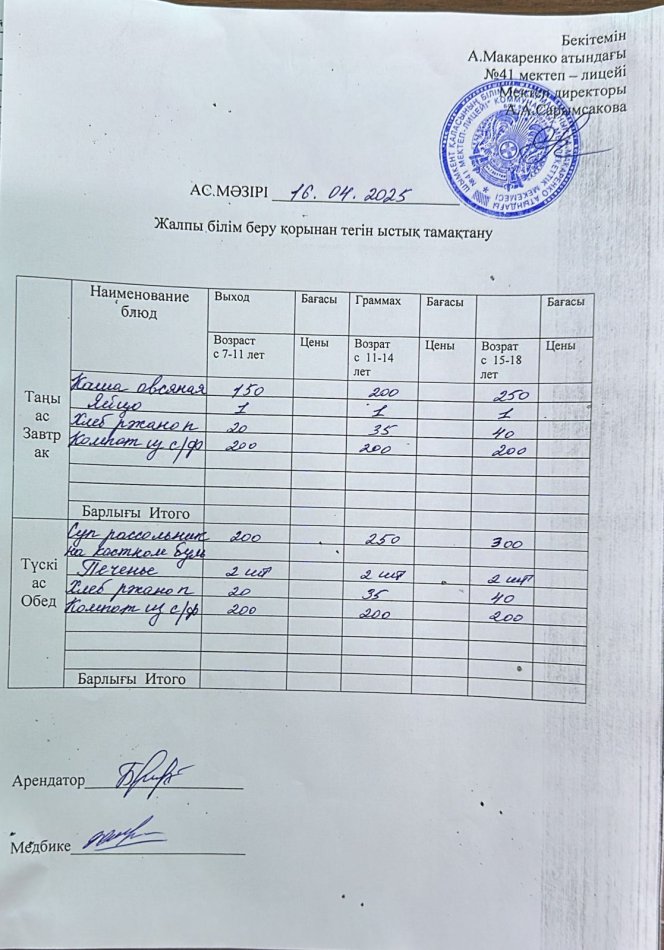 Бекітемін
А.Макаренко атындағы
№41 мектеп – лицейі
Мектеп директоры
А.А.Сарымсакова
АС.МӘЗІРІ 16. 04. 2025
Жалпы білім беру қорынан тегін ыстық тамақтану
Наименование блюд Выход Бағасы Граммах Бағасы Бағасы
Возраст с 7-11 лет Цены Возрат с 11-14 лет Цены Возрат с 15-18 лет Цены
Таңы ас Завтр ак
Каша овсяная 150 200 250
Яйцо 1 1 1
Хлеб ржаноп 20 35 40
Компот из с/ф 200 200 200
Барлығы Итого
Түскі ас Обед
Суп рассольник 200 250 300
на костном буль
Печенье 2 шт 2 шт 2 шт
Хлеб ржаноп 20 35 40
Компот из с/ф 200 200 200
Барлығы Итого
Арендатор
Медбике